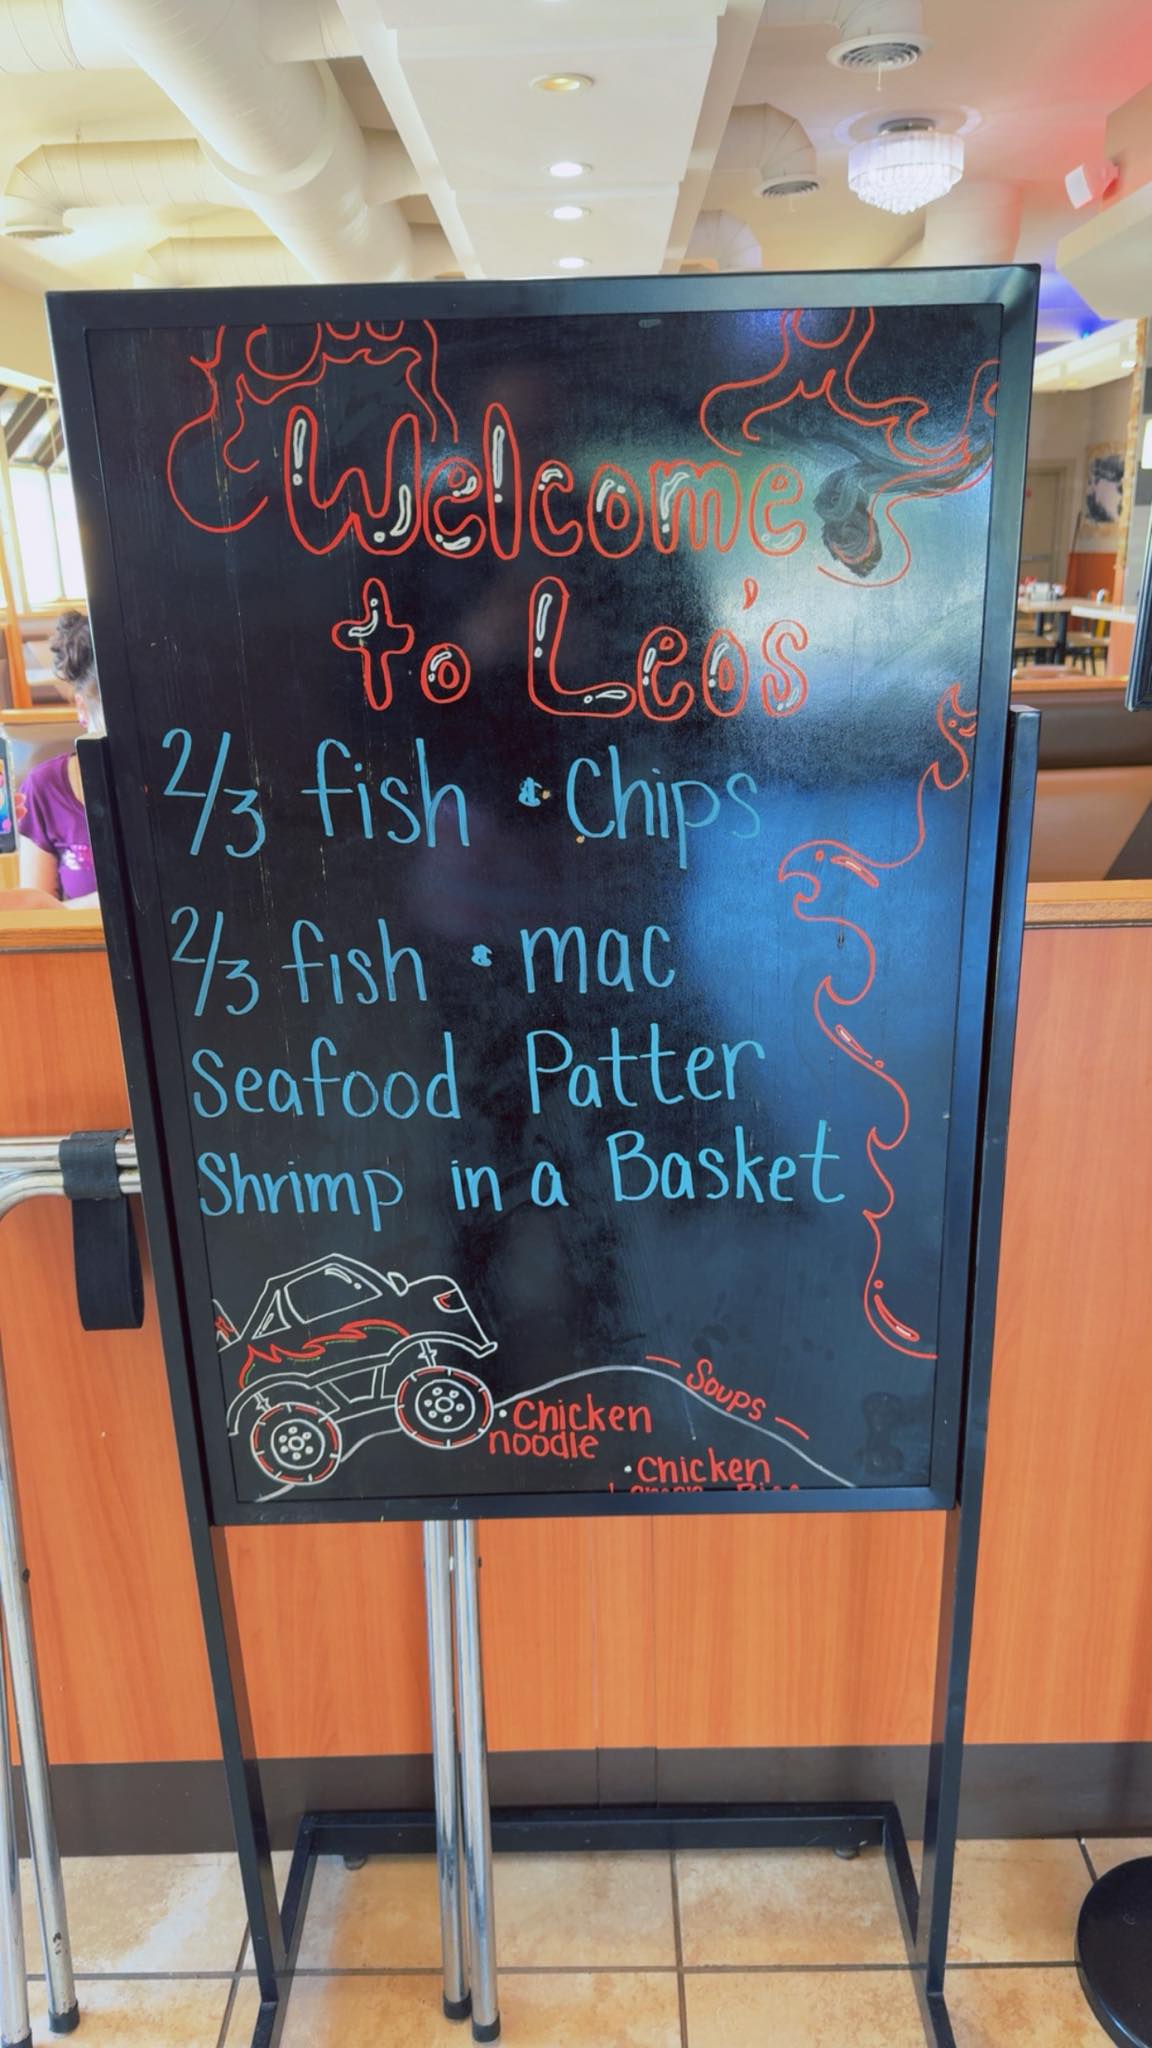 Welcome
to Leo's
2/3 fish & Chips
2/3 fish & mac
Seafood Patter
Shrimp in a Basket
- Soups -
• Chicken
noodle
• Chicken
Lemon Rice